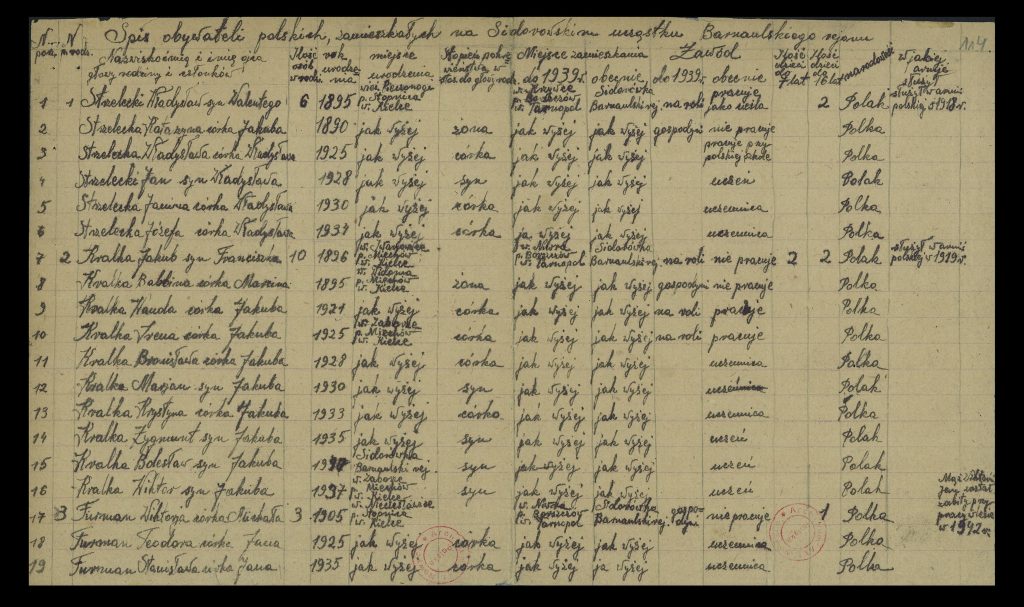 114.
N N Spis obywateli polskich, zamieszkałych na Sidorowskim uczastku Barnaulskiego rejonu
Nazwisko imię i imię ojca głowy rodziny i członków Ilość osób w rodz. rok urodzenia miejsce urodzenia Miejsce zamieszkania do 1939r. obecnie Zawód do 1939r. obecnie Ilość dzieci do 7 lat Ilość dzieci 16 lat narodowość w jakiej armje służył
1 1 Strzelecki Władysław syn Walentego 6 1895 p. Stopnica w. Kielce p. Borszczów w. Tarnopol Sidorówka Barnaulski rej. na roli pracuje jako 2 Polak służył w armii polskiej 1918 r.
2 Strzelecka Katarzyna córka Jakuba 1890 jak wyżej żona jak wyżej jak wyżej gospodyni nie pracuje Polka
3 Strzelecka Władysława córka Władysława 1925 jak wyżej córka jak wyżej jak wyżej pracuje przy polskiej szkole Polka
4 Strzelecki Jan syn Władysława 1928 jak wyżej syn jak wyżej jak wyżej uczeń Polak
5 Strzelecka Janina córka Władysława 1930 jak wyżej córka jak wyżej jak wyżej uczennica Polka
6 Strzelecka Józefa córka Władysława jak wyżej córka ja wyżej jak wyżej uczennica Polka
7 2 Kralka Jakub syn Franciszka 10 1896 p. Miechów w. Kielce p. Borszczów w. Tarnopol Sidorówka Barnaulski rej. na roli nie pracuje 2 2 Polak służył w armii polskiej w 1919 r.
8 Kralka Balbina córka Marcina 1895 p. Miechów w. Kielce żona jak wyżej jak wyżej gospodyni nie pracuje Polka
9 Kralka Wanda córka Jakuba jak wyżej córka jak wyżej ja wyżej na roli pracuje Polka
10 Kralka Irena córka Jakuba 1925 p. Miechów w. Kielce córka jak wyżej jak wyżej na roli pracuje Polka
11 Kralka Bronisława córka Jakuba 1928 jak wyżej córka jak wyżej jak wyżej uczennica Polka
12 Kralka Marjan syn Jakuba 1930 jak wyżej syn jak wyżej jak wyżej Polak
13 Kralka Krystyna córka Jakuba 1933 jak wyżej córka jak wyżej jak wyżej uczennica Polka
14 Kralka Zygmunt syn Jakuba 1935 jak wyżej syn jak wyżej jak wyżej uczeń Polak
15 Kralka Bolesław syn Jakuba Sidorówka Barnaulski rej. syn jak wyżej jak wyżej uczeń Polak
16 Kralka Wiktor syn Jakuba 1937 p. Miechów w. Kielce syn jak wyżej jak wyżej uczeń Polak
17 3 Furman Wiktorja córka Michała 3 1905 w. Kielce p. Borszczów w. Tarnopol Sidorówka Barnaulski rej. gospodyni nie pracuje 1 Polka Mąż Jan został zabity przy pracy w lesie w 1942 r.
18 Furman Teodora córka Jana 1925 jak wyżej córka jak wyżej jak wyżej uczennica Polka
19 Furman Stanisława córka Jana 1935 jak wyżej córka jak wyżej ja wyżej uczennica Polka